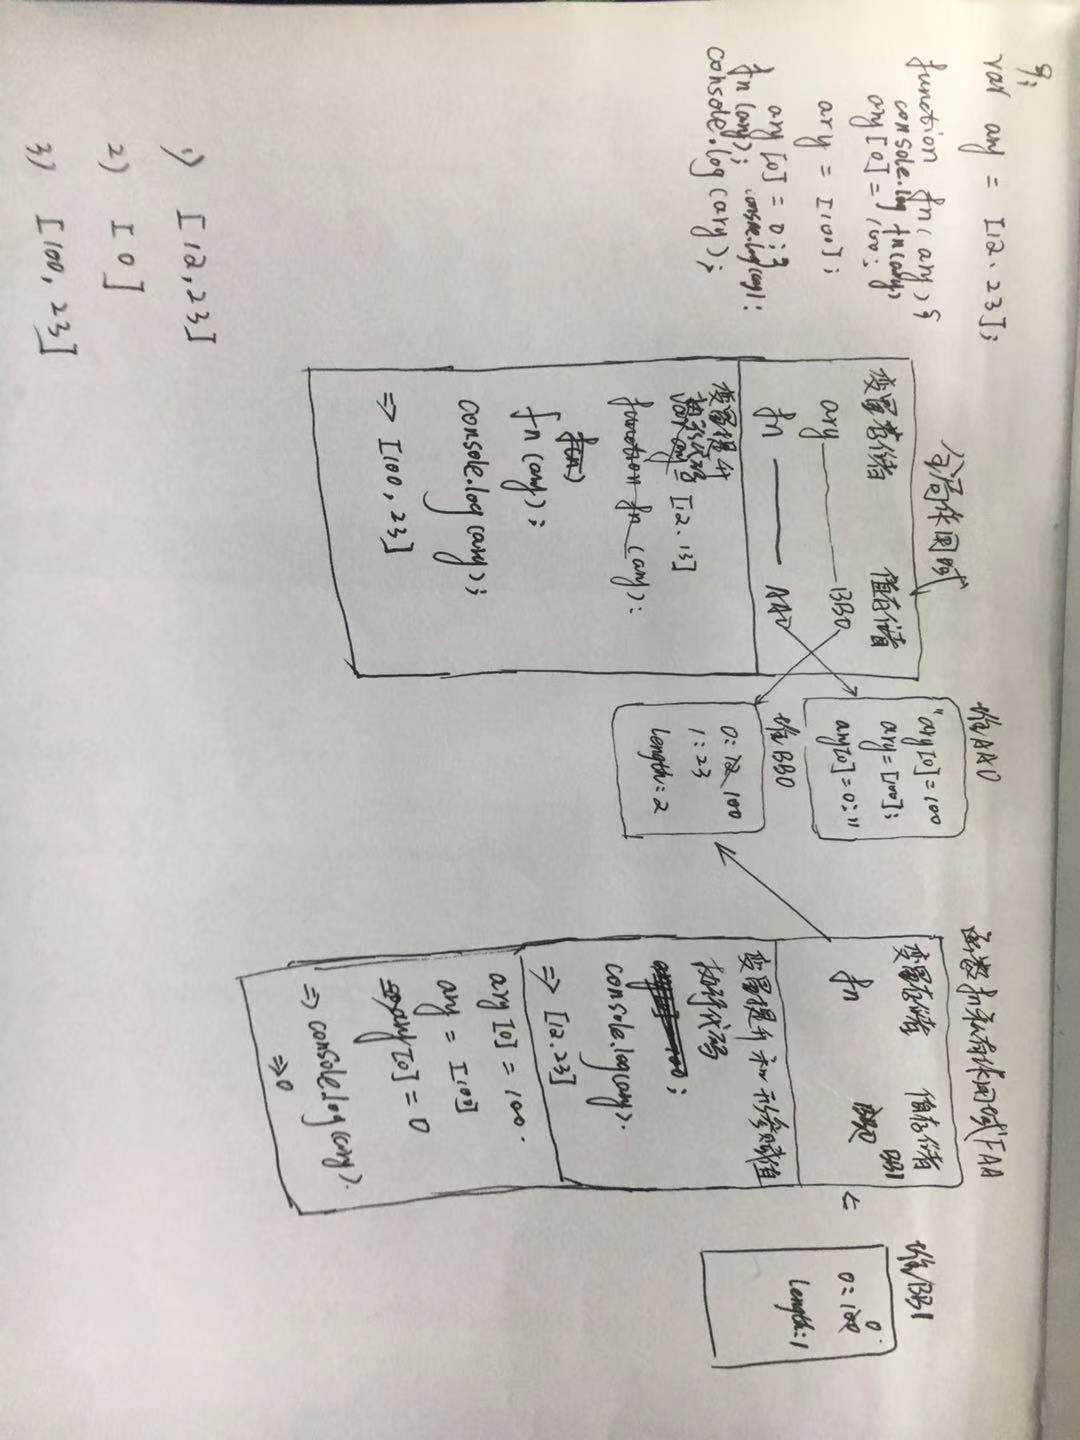 9;
var ary = [12.23];
function fn(ary){
console.log fn(ary);
ary[0]=100;
ary = [100];
ary[0]=0;}
fn(ary); console.log(ary);
console.log(ary);
1) [12,23]
2) [0]
3) [100,23]
全局作用域
变量存储 值存储
ary BB0
fn AA0
变量提升
var ary = [12.13]
function fn(ary);
fn(ary);
console.log(ary);
=> [100,23]
堆AA0
"ary[0]=100
ary=[100];
ary[0]=0;"
堆BB0
0:12 100
1:23
length=2
函数执行私有作用域FAA
变量存储 值存储
fn BB1
变量提升和形参赋值
执行代码
console.log(ary).
=> [12.23]
ary[0]=100.
ary = [100]
ary[0]=0
=> console.log(ary).
=>0
堆BB1
0
0=100
length:1